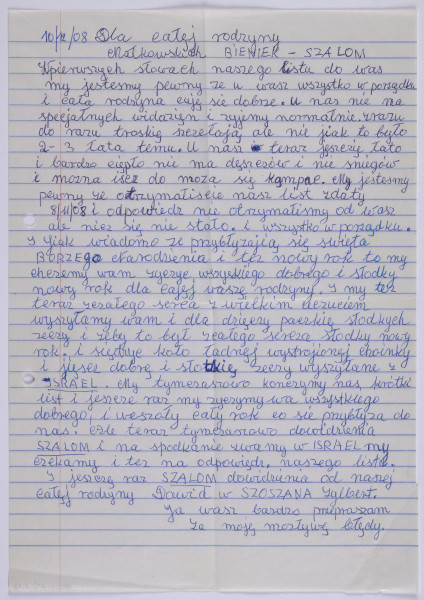 10/12/08 Dla całej rodziny
Mołkowskich BIENIEK - SZALOM
W pierwszych słowach naszego listu do was
my jestesmy pewny że u was wszystko w porządku
i cała rodzyna czują się dobrze. U nas nie ma
specjalnych widarzyń i żyjemy normalnie. w razu
do razu troskię szczelają, ale nie jiak to było
2-3 lata temu. U nas i teraz jeszczę lato
i bardzo ciepło nie ma dęszczów i nie sniegów
i można iść do moża się kąmpać. My jestesmy
pewny że otrzymaliscie nasz list z daty
8/11/08 i odpowiedz nie otrymalismy od was
ale nicz się nie stało. i wszystko w porządku.
I jiak wiadomo że przybłyżają się swięta
BORZEGO Narodzenia i też nowy rok to my
chcemy wam życzyć wszyskiego dobrego i słodky
nowy rok dla całej waszę rodzyny. I my też
teraz z całego serca z wielkim uczuciem
wyszyłamy wam i dla dzięcy paczkię słodkych
rzeczy i żeby to był z całego serca słodky nowy
rok. i siędzyć koło ładniej wystrojonej choinky
i jiesć dobrę i słodkię rzeczy wyszyłanę z
ISRAEL. My tymczasowo konczymy nas krótki
list i jeszczę raz my życzymy was wszystkiego
dobrego i wesoły cały rok co się przybłyża do
nas. Ale teraz tymczasowo dowidzenia
SZALOM i na spodkanie z wamy w ISRAEL my
czekamy i też na odpowiedz naszego lista.
I jeszczę raz SZALOM dowidzenia od naszej
całej rodziny Dawid w SZOSZANA Zylbert.
Ja wasz bardzo przepraszam
za moję możływę błędy.